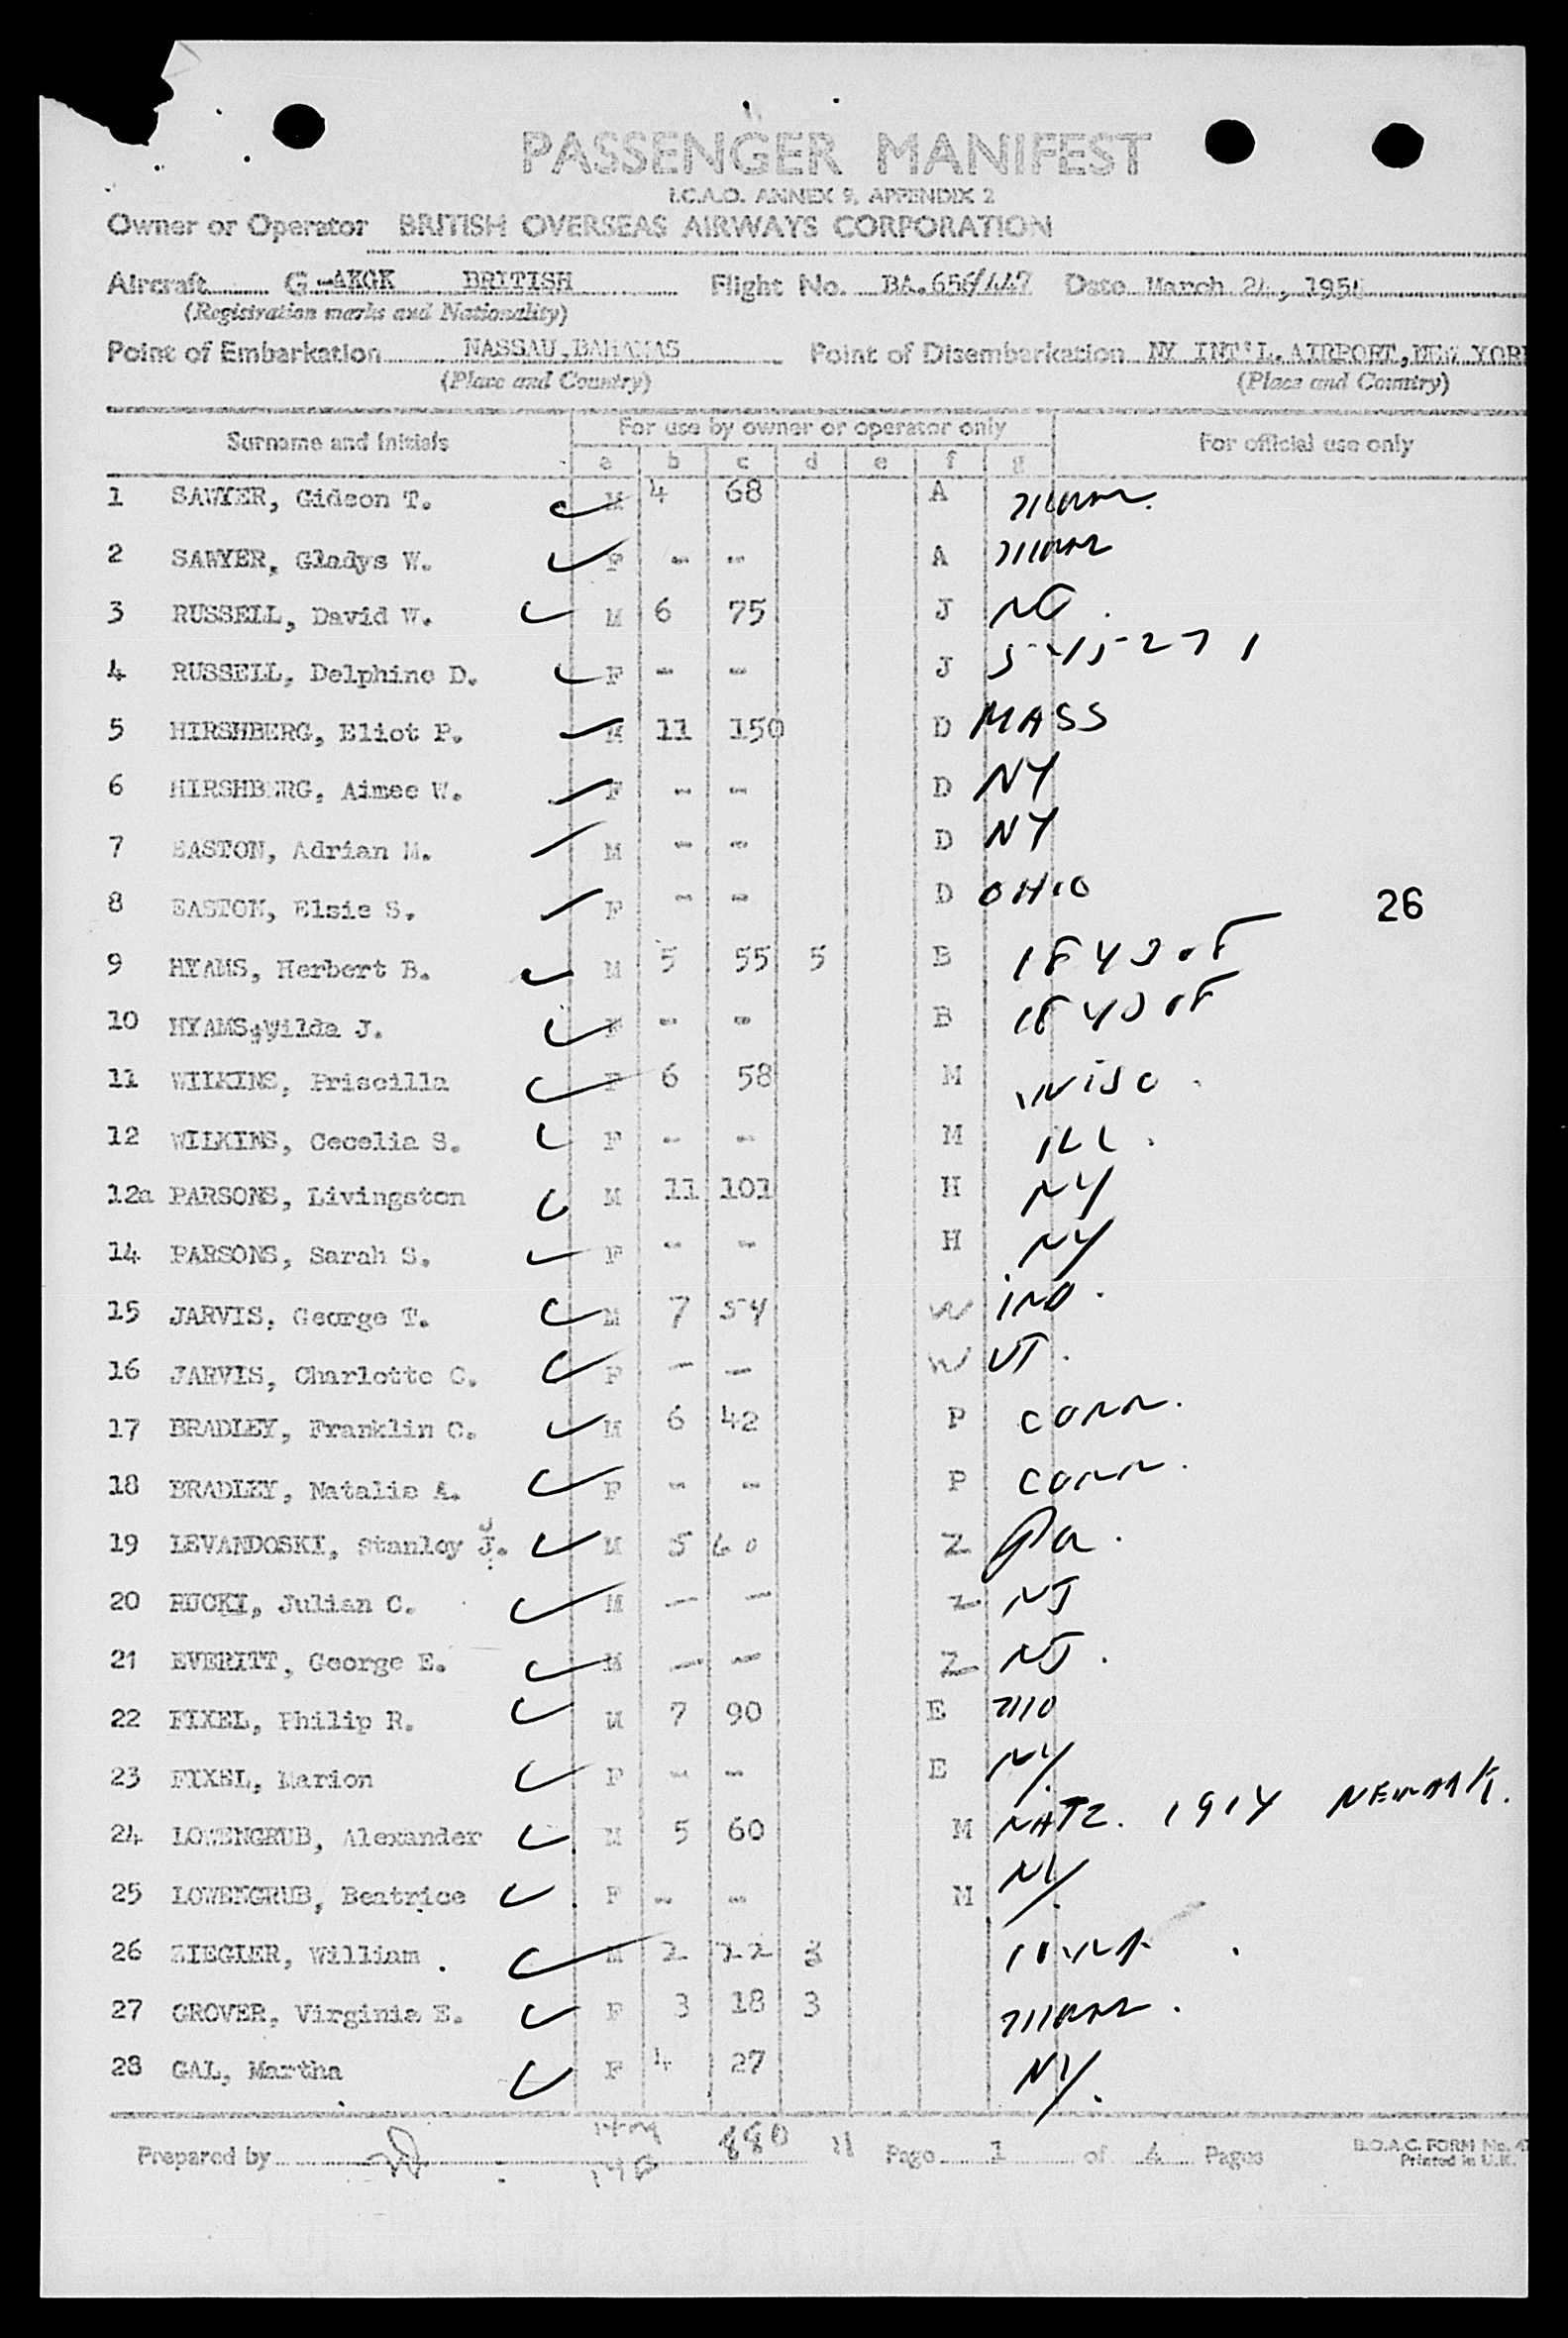 PASSENGER MANIFEST
I.C.A.O. ANNEX 9, APPENDIX 2
Owner or Operator BRITISH OVERSEAS AIRWAYS CORPORATION
Aircraft G-AKGK BRITISH Flight No. BA.656/447 Date March 24, 195
(Registration marks and Nationality)
Point of Embarkation NASSAU, BAHAMAS Point of Disembarkation NY INT'L. AIRPORT, NEW YORK
(Place and Country) (Place and Country)
Surname and Initials For use by owner or operator only For official use only
a b c d e f g
1 SAWYER, Gideon T. M 4 68 A
2 SAWYER, Gladys W. F - - A
3 RUSSELL, David W. M 6 75 J
4 RUSSELL, Delphine D. F - - J
5 HIRSHBERG, Eliot P. M 11 150 D MASS
6 HIRSHBERG, Aimee W. F - - D NY
7 EASTON, Adrian M. M - - D NY
8 EASTON, Elsie S. F - - D OHIO 26
9 HYAMS, Herbert B. M 5 55 5 B
10 HYAMS, Wilda J. F - - B
11 WILKINS, Priscilla F 6 58 M WISC.
12 WILKINS, Cecelia S. F - - M ILL.
12a PARSONS, Livingston M 11 101 H NY
14 PARSONS, Sarah S. F - - H NY
15 JARVIS, George T. M 7 54 W IND.
16 JARVIS, Charlotte C. F - - W VT.
17 BRADLEY, Franklin C. M 6 42 P CONN.
18 BRADLEY, Natalie A. F - - P CONN.
19 LEVANDOSKI, Stanley J. M 5 60 Z Pa.
20 RUCKI, Julian C. M - - Z NJ
21 EVERITT, George E. M - - Z NJ.
22 FIXEL, Philip R. M 7 90 E MO
23 FIXEL, Marion F - - E NY.
24 LOWENGRUB, Alexander M 5 60 M NATZ. 1914 NEWARK.
25 LOWENGRUB, Beatrice F - - M NY.
26 ZIEGLER, William M 2 22 3
27 GROVER, Virginia E. F 3 18 3
28 GAL, Martha F 4 27 NY.
880 11
Prepared by Page 1 of 4 Pages B.O.A.C. FORM No. 4
Printed in U.K.